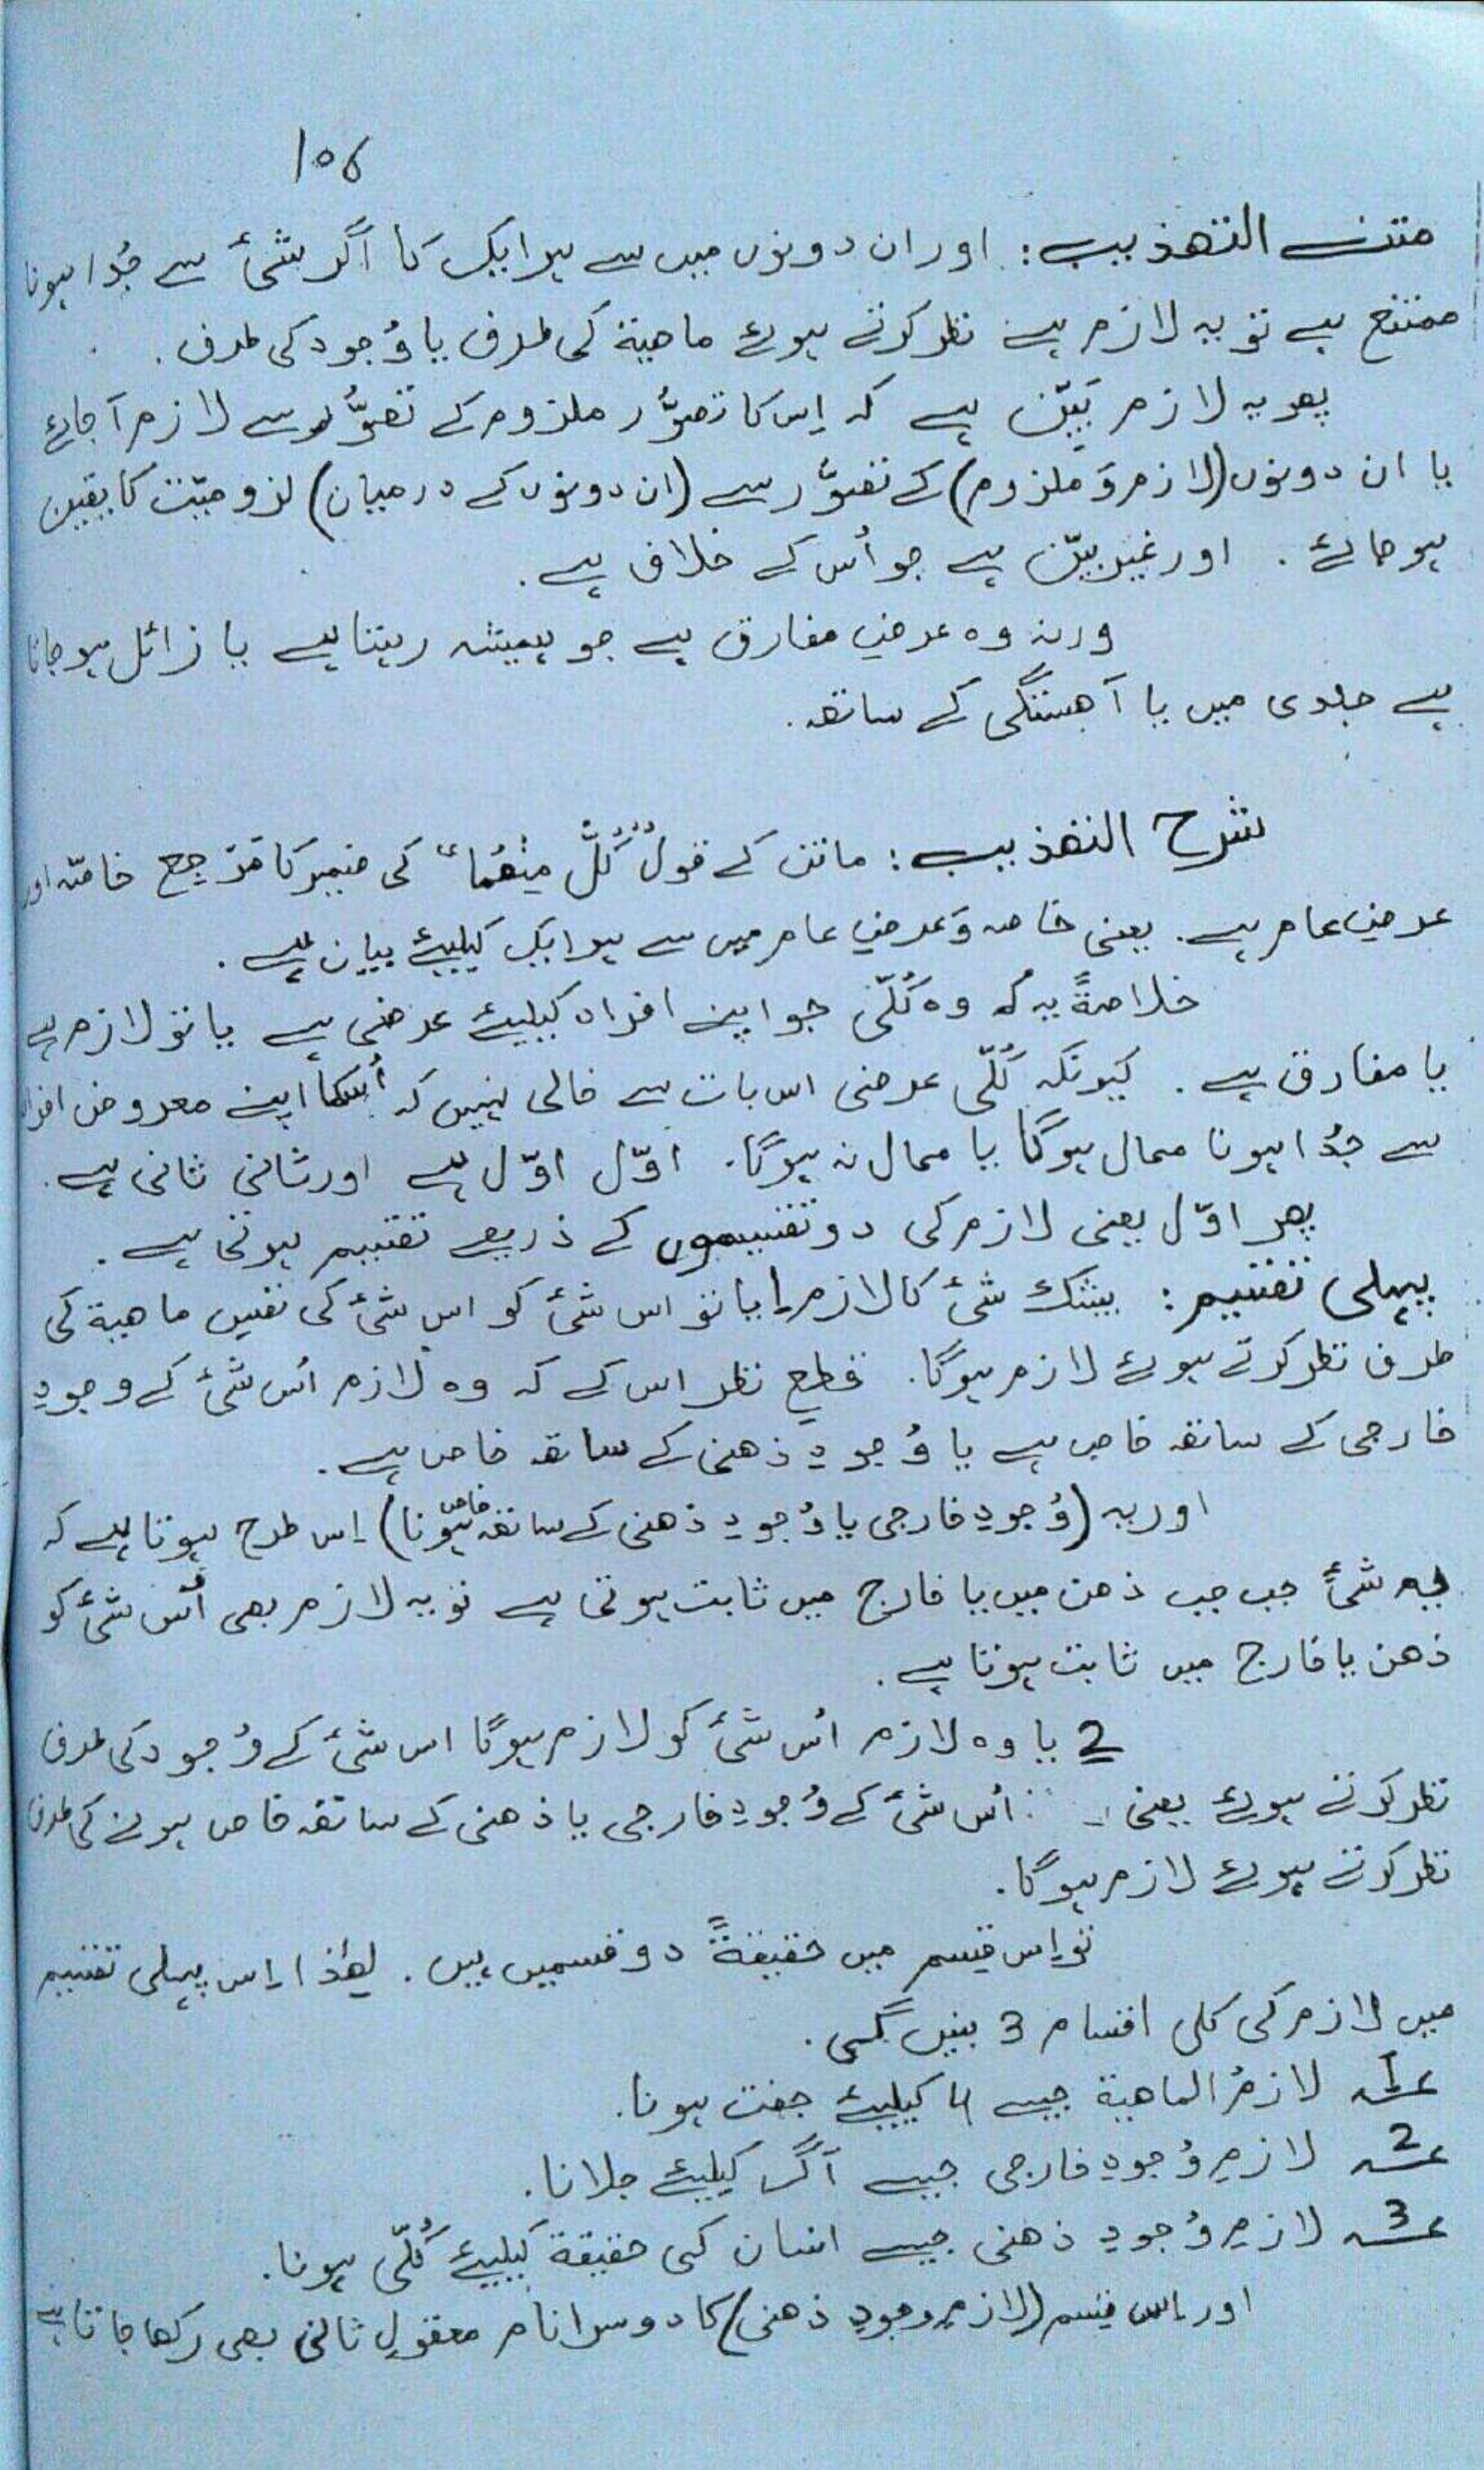 106
متن التھذیب: اور ان دونوں میں سے ہر ایک کا اگر شئ سے جُدا ہونا
ممتنع ہے تو یہ لازم ہے نظر کرتے ہوئے ماھیۃ کی طرف یا وُجود کی طرف.
پھر یہ لازم بَیِّن ہے کہ اِس کا تصوُّر ملزوم کے تصوُّر سے لازم آجائے
یا ان دونوں (لازم وَ ملزوم) کے تصوُّر سے (ان دونوں کے درمیان) لزومیّت کا یقین
ہوجائے. اور غیر بیّن ہے جو اُس کے خلاف ہے.
ورنہ وہ عرضِ مفارق ہے جو ہمیشہ رہتا ہے یا زائل ہوجاتا
ہے جلدی میں یا آھستگی کے ساتھ.
شرح التھذیب: ماتن کے قول "کُلٌّ مِنْھُمَا" کی ضمیر کا مَرْجِع خاصّہ اور
عرضِ عام ہے. یعنی خاصہ وَ عرضِ عام میں سے ہر ایک کیلیئے بیان ہے.
خلاصۃً یہ کہ وہ کُلّی جو اپنے افراد کیلیئے عرضی ہے یا تو لازم ہے
یا مفارق ہے. کیونکہ کُلّی عرضی اس بات سے خالی نہیں کہ اُسکا اپنے معروض افراد
سے جُدا ہونا محال ہوگا یا محال نہ ہوگا. اوّل اوّل ہے اور ثانی ثانی ہے.
پھر اوّل یعنی لازم کی دو تقسیموں کے ذریعے تقسیم ہوتی ہے.
پہلی تقسیم: بیشک شئ کا لازم 1 یا تو اس شئ کو اس شئ کی نفسِ ماھیۃ کی
طرف نظر کرتے ہوئے لازم ہوگا. قطعِ نظر اس کے کہ وہ لازم اُس شئ کے وجودِ
خارجی کے ساتھ خاص ہے یا وُجودِ ذھنی کے ساتھ خاص ہے.
اور یہ (وُجودِ خارجی یا وُجودِ ذھنی کے ساتھ خاص ہونا) اِس طرح ہوتا ہے کہ
یہ شئ جب جب ذھن میں یا خارج میں ثابت ہوتی ہے تو یہ لازم بھی اُس شئ کو
ذھن یا خارج میں ثابت ہوتا ہے.
2 یا وہ لازم اُس شئ کو لازم ہوگا اس شئ کے وُجود کی طرف
نظر کرتے ہوئے یعنی اُس شئ کے وُجودِ خارجی یا ذھنی کے ساتھ خاص ہونے کی طرف
نظر کرتے ہوئے لازم ہوگا.
تو اِس قِسم میں حقیقۃً دو قسمیں ہیں. لھٰذا اِس پہلی تقسیم
میں لازم کی کلی اقسام 3 بنیں گی.
1؎ لازمُ الماھیۃ جیسے 4 کیلیئے جفت ہونا.
2؎ لازمِ وُجودِ خارجی جیسے آگ کیلیئے جلانا.
3؎ لازمِ وُجودِ ذھنی جیسے انسان کی حقیقۃ کیلیئے کُلّی ہونا.
اور اِس قِسم (لازمِ وجودِ ذھنی) کا دوسرا نام معقولِ ثانی بھی رکھا جاتا ہے